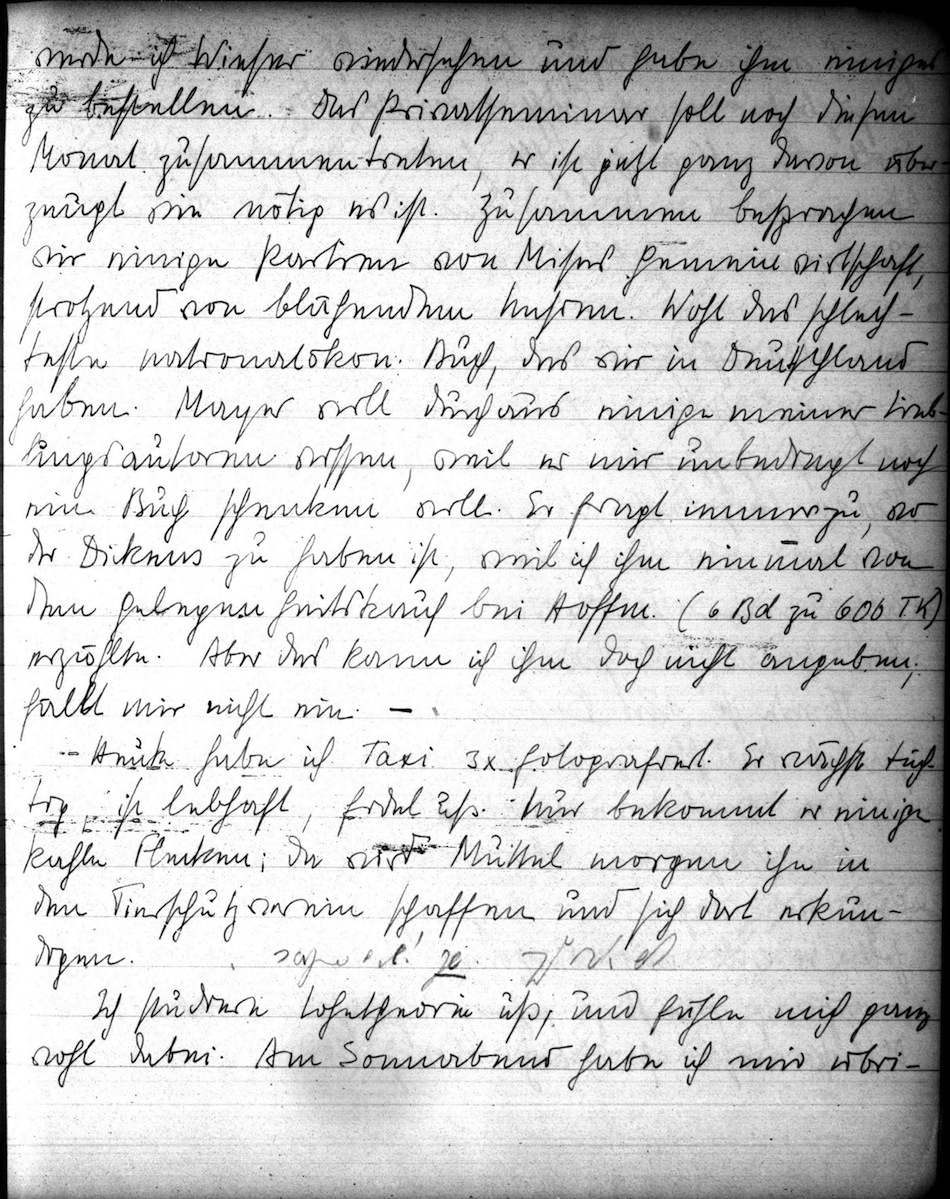 werde ich Wieser wiedersehen und habe ihm einiges
zu bestellen. Das Privatseminar soll noch diesen
Monat zusammentreten, er ist jetzt ganz davon über
zeugt wie nötig es ist. Zusammen besprachen
wir einige Partien von Mises Gemeinwirtschaft,
strotzend von blühendem Unsinn. Wohl das schlech-
teste nationalökon. Buch, das wir in Deutschland
haben. Mayer will durchaus einige meiner Lieb
lingsautoren wissen, weil er mir unbedingt noch
ein Buch schenken will. Er fragt immerzu, wo
der Dikens zu haben ist, weil ich ihm einmal von
dem Gelegenheitskauf bei Hoffm. (6 Bd zu 600 TK)
erzählte. Aber das kann ich ihm doch nicht angeben,
fällt mir nicht ein. –
– Heute habe ich Taxi 3x fotografiert. Er wächst tüch-
tig, ist lebhaft, fidel usf. Nur bekommt er einige
kahle Flecken; da wird Muttel morgen ihn in
den Tierschutzverein schaffen und sich dort erkun-
digen.
Ich studiere Lohntheorie usf, und fühle mich ganz
wohl dabei. Am Sonnabend habe ich mir übri-